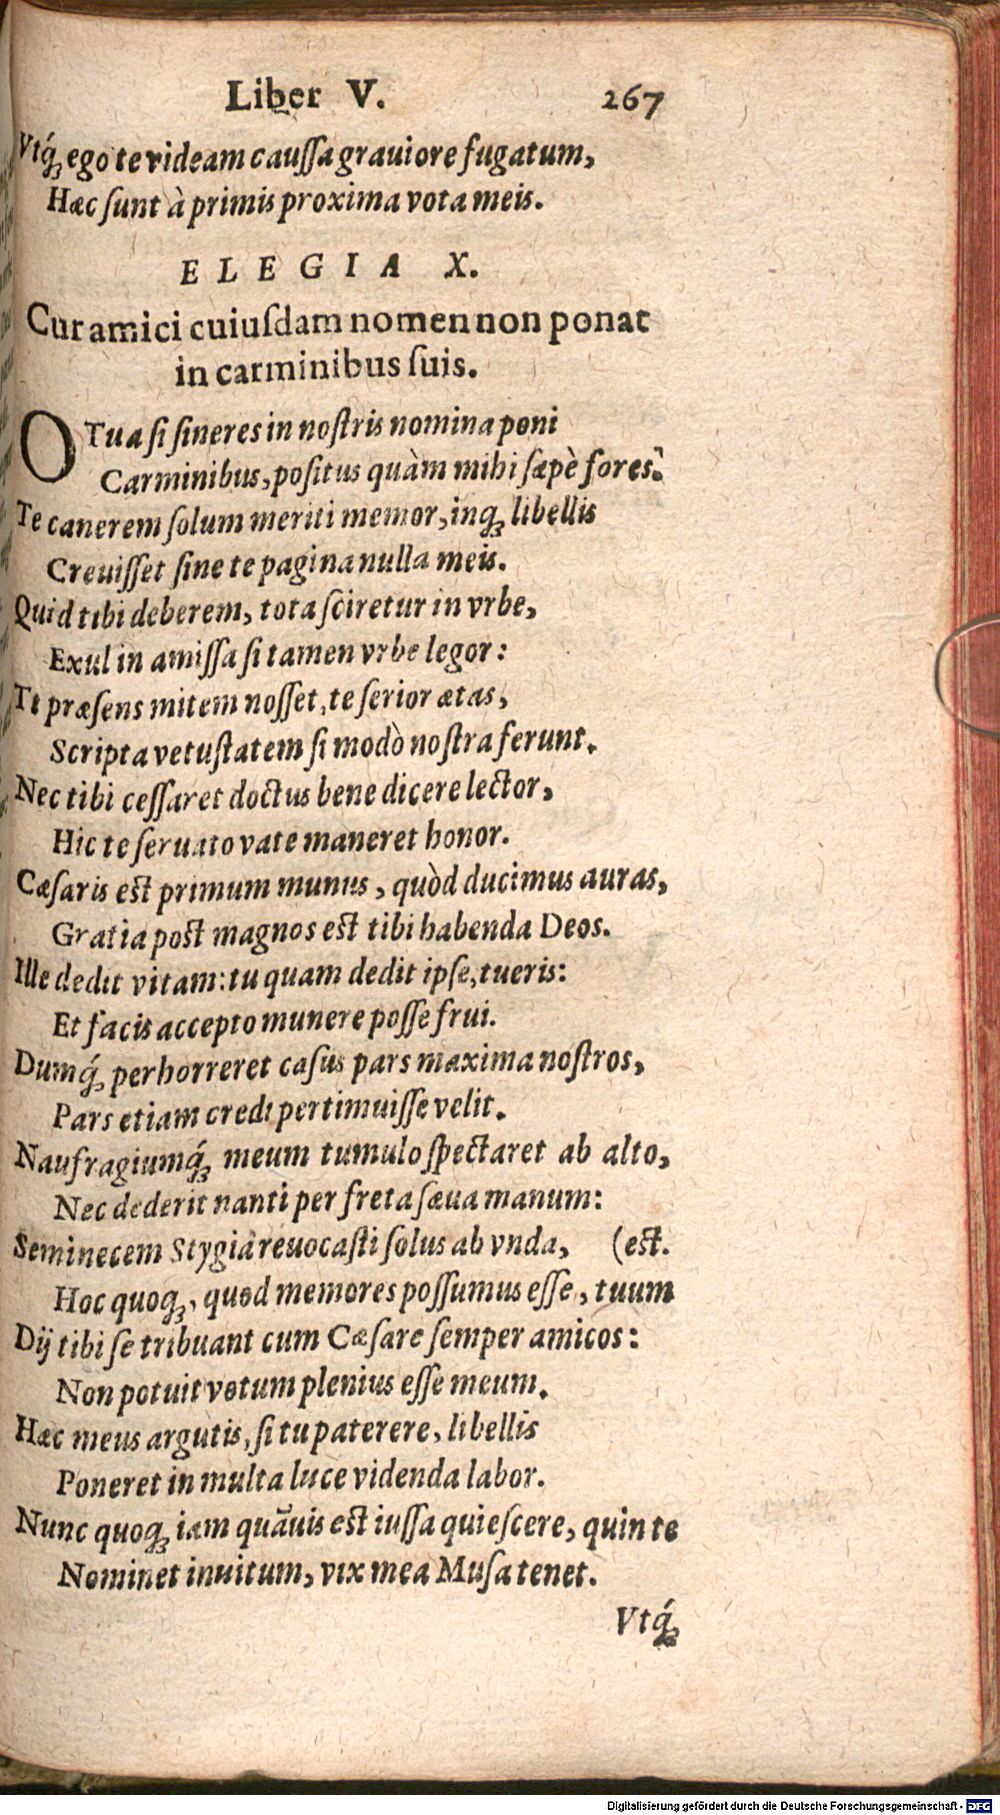 Liber V. 267
Vtq́ꝫ ego te videam cauſſa grauiore fugatum,
Hæc ſunt à primis proxima vota meis.
ELEGIA X.
Cur amici cuiuſdam nomen non ponat
in carminibus ſuis.
O Tua ſi ſineres in noſtris nomina poni
Carminibus, poſitus quàm mihi ſæpè fores?
Te canerem ſolum meriti memor, inqꝫ libellis
Creuiſſet ſine te pagina nulla meis.
Quid tibi deberem, tota ſciretur in vrbe,
Exul in amiſſa ſi tamen vrbe legor:
Te præſens mitem noſſet, te ſerior ætas,
Scripta vetuſtatem ſi modò noſtra ferunt.
Nec tibi ceſſaret doctus bene dicere lector,
Hic te ſeruato vate maneret honor.
Cæſaris eſt primum munus, quòd ducimus auras,
Gratia poſt magnos eſt tibi habenda Deos.
Ille dedit vitam: tu quam dedit ipſe, tueris:
Et facis accepto munere poſſe frui.
Dumq́ꝫ perhorreret caſus pars maxima noſtros,
Pars etiam credi pertimuiſſe velit.
Naufragiumq́ꝫ meum tumulo ſpectaret ab alto,
Nec dederit nanti per freta ſæua manum:
Seminecem Stygiâ reuocaſti ſolus ab vnda, (eſt.
Hoc quoqꝫ, quod memores poſſumus eſſe, tuum
Dij tibi ſe tribuant cum Cæſare ſemper amicos:
Non potuit votum plenius eſſe meum.
Hæc meus argutis, ſi tu paterere, libellis
Poneret in multa luce videnda labor.
Nunc quoqꝫ iam quãuis eſt iuſſa quieſcere, quin te
Nominet inuitum, vix mea Muſa tenet.
Vtq́ꝫ
Digitalisierung gefördert durch die Deutsche Forschungsgemeinschaft - DFG